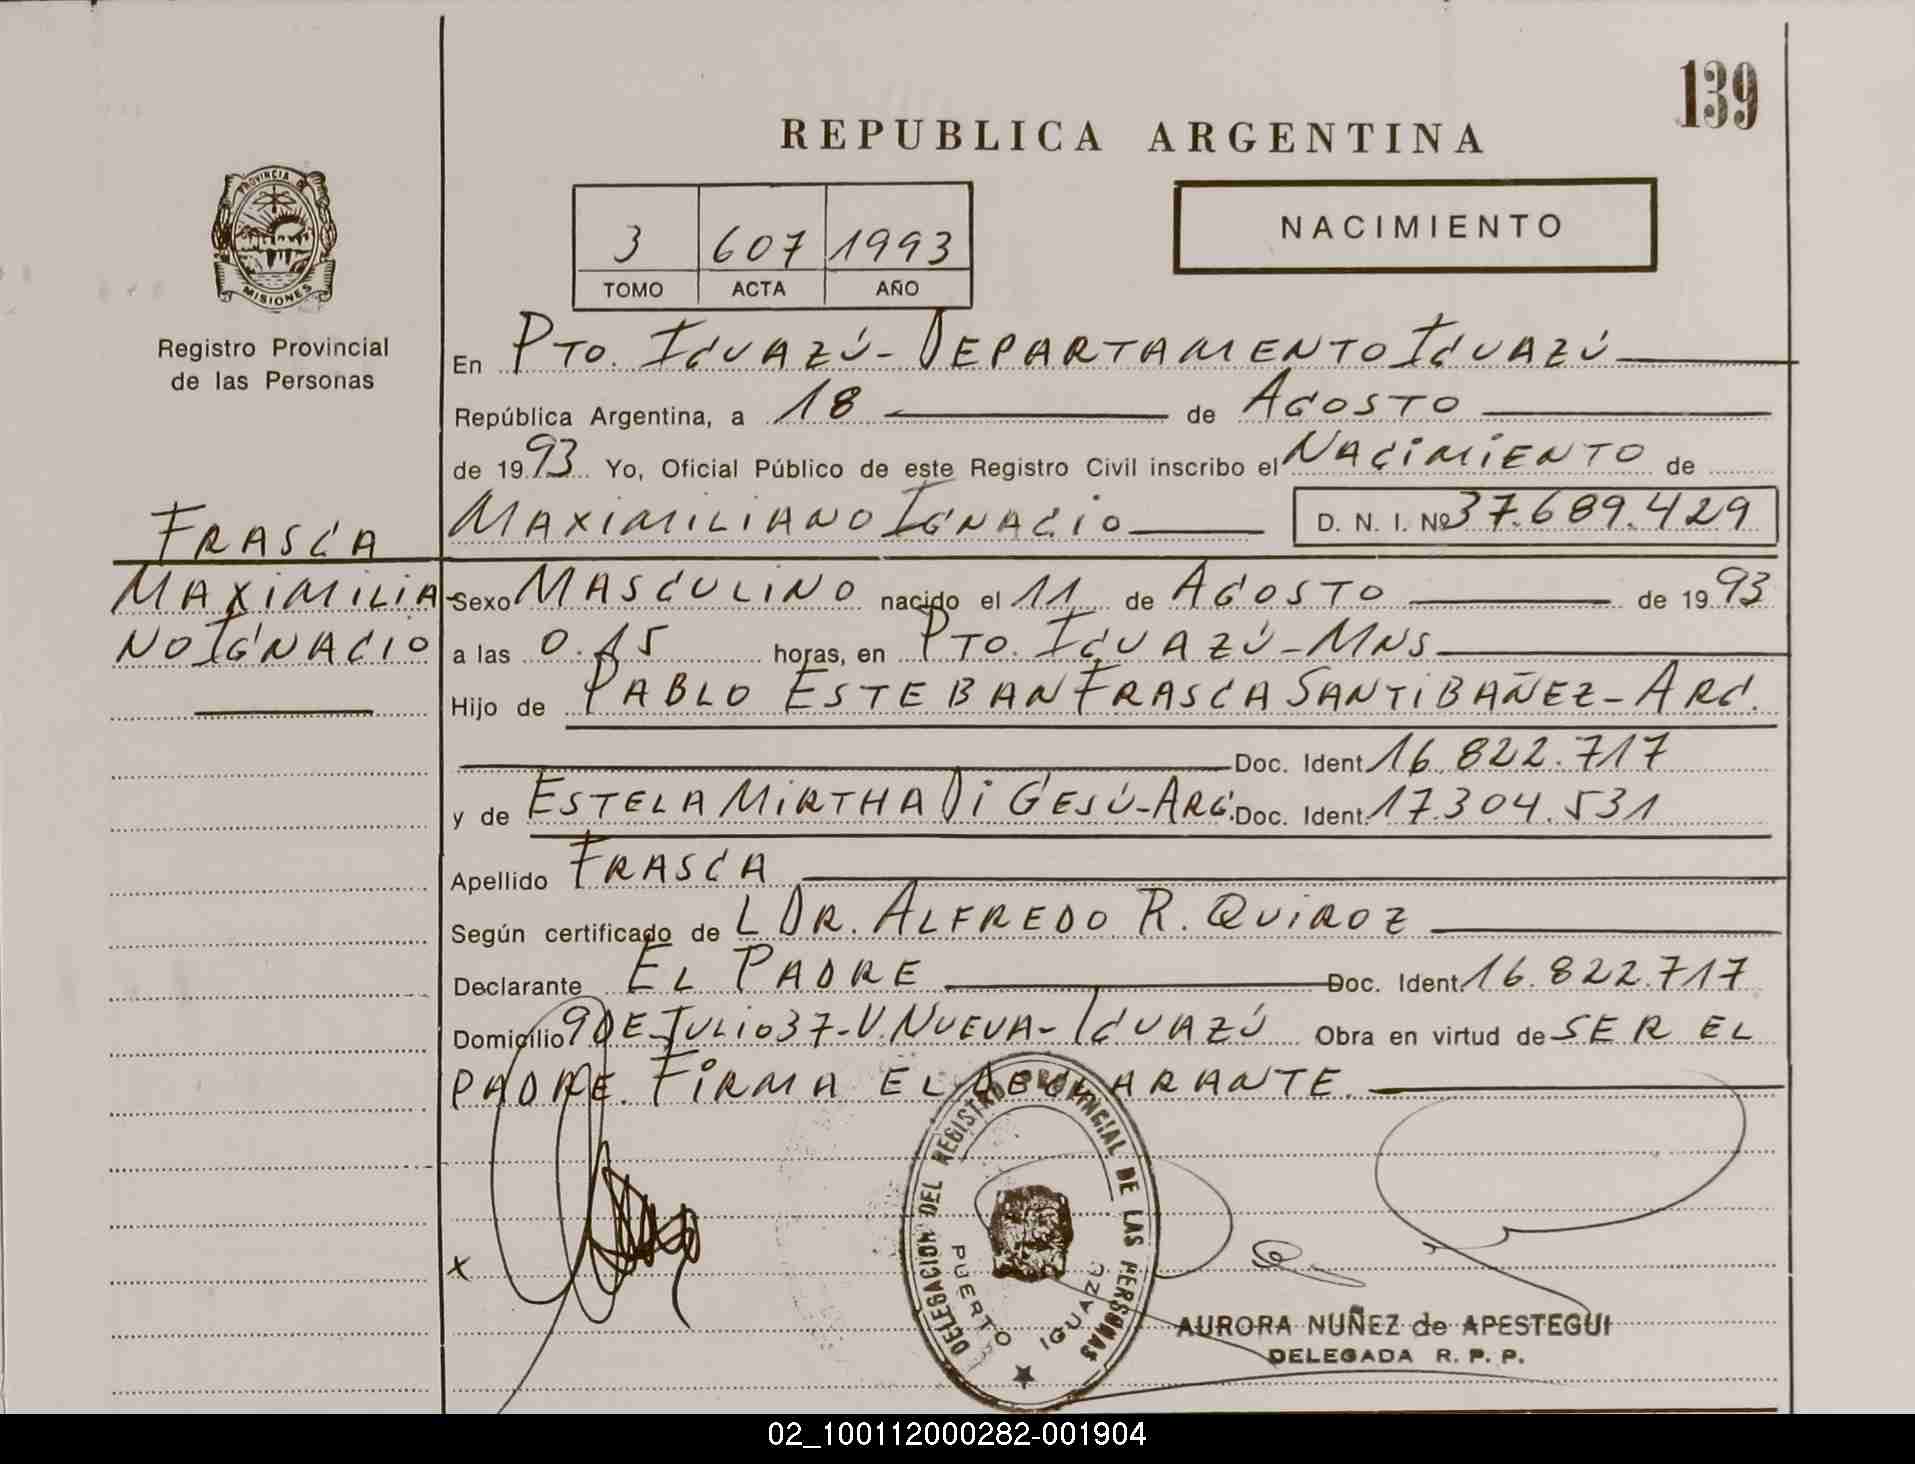 139
REPUBLICA ARGENTINA
PROVINCIA DE
MISIONES
Registro Provincial
de las Personas
3 607 1993
TOMO ACTA AÑO
NACIMIENTO
En PTO. IGUAZÚ - DEPARTAMENTO IGUAZÚ
República Argentina, a 18 de AGOSTO
de 1993 Yo, Oficial Público de este Registro Civil inscribo el NACIMIENTO de
MAXIMILIANO IGNACIO D. N. I. Nº 37.689.429
FRASCA
MAXIMILIA-
NO IGNACIO
Sexo MASCULINO nacido el 11 de AGOSTO de 1993
a las 0.15 horas, en PTO. IGUAZÚ - MNS
Hijo de PABLO ESTEBAN FRASCA SANTIBAÑEZ - ARG.
Doc. Ident. 16.822.717
y de ESTELA MIRTHA DI GESÚ - ARG. Doc. Ident. 17.304.531
Apellido FRASCA
Según certificado de L DR. ALFREDO R. QUIROZ
Declarante EL PADRE Doc. Ident. 16.822.717
Domicilio 9 DE JULIO 37 - V. NUEVA - IGUAZÚ Obra en virtud de SER EL
PADRE. FIRMA EL DECLARANTE.
DELEGACION DEL REGISTRO PROVINCIAL DE LAS PERSONAS
PUERTO IGUAZU
X
AURORA NUÑEZ de APESTEGUI
DELEGADA R. P. P.
02_100112000282-001904